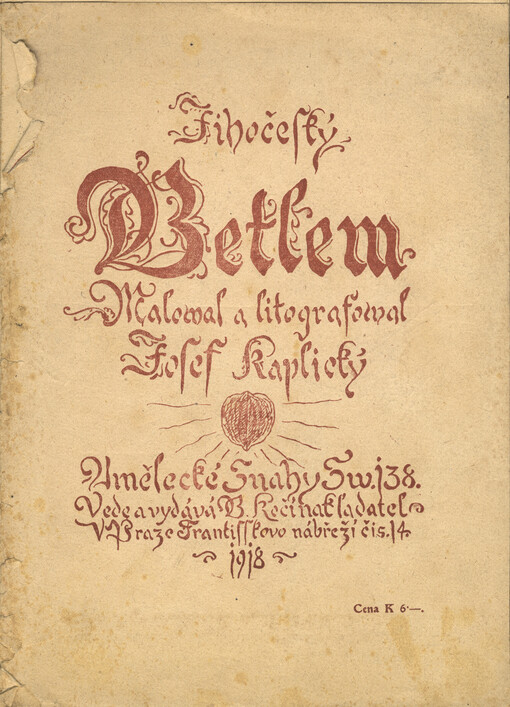 Jihočeský
Betlem
Malowal a litografowal
Josef Kaplický
Umělecké Snahy Sw. 138.
Vede a vydává B. Kočí nakladatel
V Praze Frantisskovo nábřeží čis. 14
1918
Cena K 6·—.